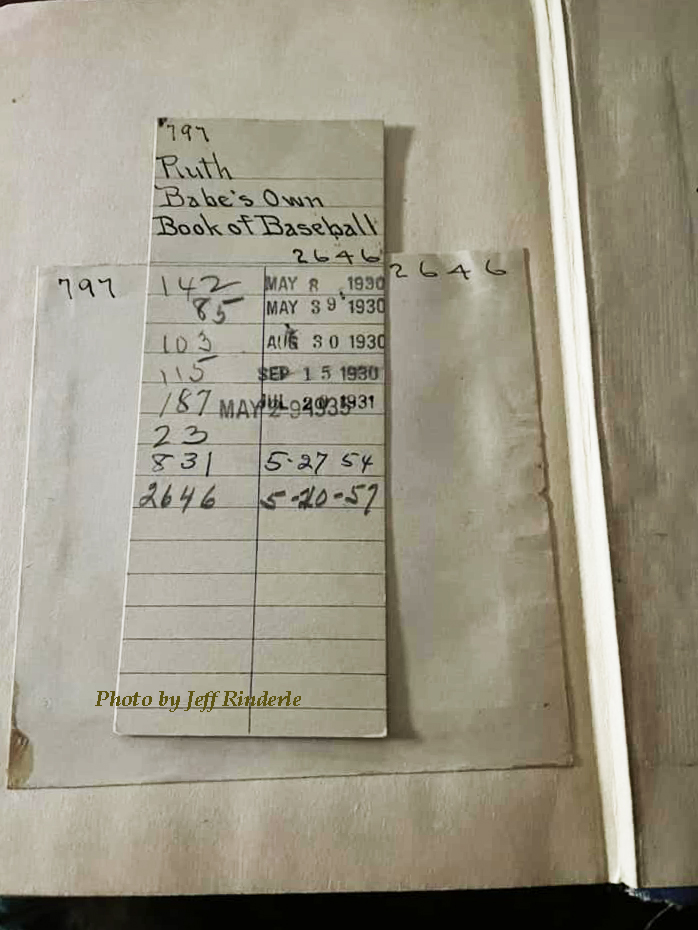 797
Ruth
Babe's Own
Book of Baseball
2646
797 142 MAY 8 1930 2646
85 MAY 39 1930
103 AUG 30 1930
115 SEP 15 1930
187 MAY 29 1935 JUL 20 1931
23
831 5-27 54
2646 5-20-57
Photo by Jeff Rinderle